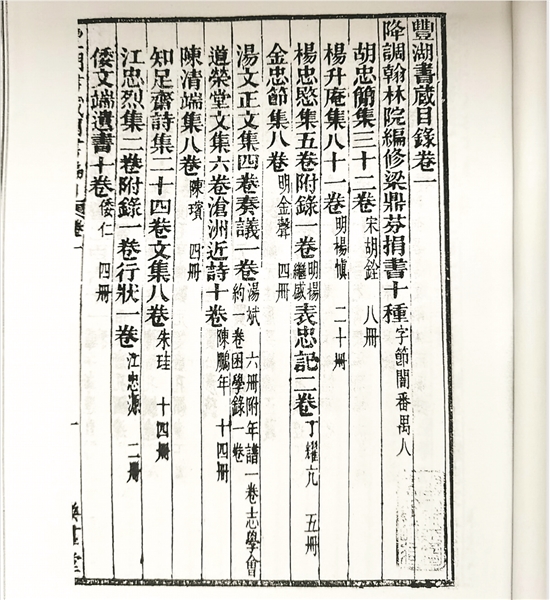 豐湖書藏目錄卷一
降調翰林院編修梁鼎芬捐書十種 字節闇番禺人
胡忠簡集三十二卷 宋胡銓 八冊
楊升庵集八十一卷 明楊慎 二十冊
楊忠愍集五卷附錄一卷 明楊繼盛 表忠記二卷 丁耀亢 五冊
金忠節集八卷 明金聲 四冊
湯文正文集四卷奏議一卷 湯斌 六冊附年譜一卷志學會約一卷困學錄一卷
道榮堂文集六卷滄洲近詩十卷 陳鵬年 十四冊
陳清端集八卷 陳璸 四冊
知足齋詩集二十四卷文集八卷 朱珪 十四冊
江忠烈集二卷附錄一卷行狀一卷 江忠源 二冊
倭文端遺書十卷 倭仁 四冊
卷一
一